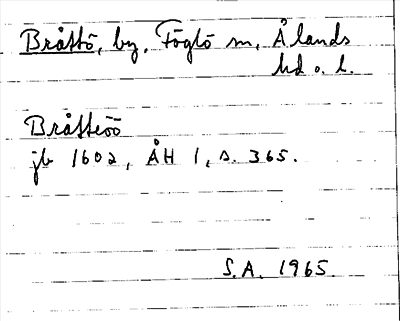 Bråttö, by, Föglö sn, Ålands
hd o. l.
Bråtteöö
jb 1602, ÅH 1, s. 365.
S.A. 1965